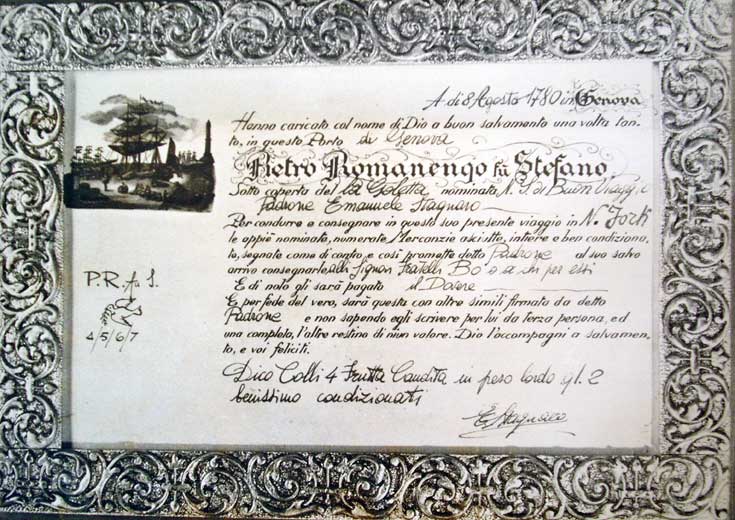 A di 8 Agosto 1780 in Genova
Hanno caricato col nome di Dio a buon salvamento una volta tan-
to, in questo Porto di Genova
Pietro Romanengo fu Stefano
Sotto coperta del la Goletta nominata N. S. di Buon Viaggio
Padrone Emanuele Stagnaro
Per condurre e consegnare in questo suo presente viaggio in N. York
le oppiè nominate, numerate Mercanzie asciutte, intiere e ben condiziona-
te, segnate come di contro, e così promette detto Padrone al suo salvo
arrivo consegnarle alli Signori Fratelli Bo' o a chi per essi
E di nolo gli sarà pagato il Dovere
E per fede del vero, sarà questa con altre simili firmata da detto
Padrone e non sapendo egli scrivere per lui da terza persona, ed
una completa, l'altre restino di niun valore. Dio l'accompagni a salvamen-
to, e voi feliciti.
P. R. fu S.
4/5/6/7
Dico Colli 4 Frutta Candita in peso lordo ql. 2
benissimo condizionati
E. Stagnaro